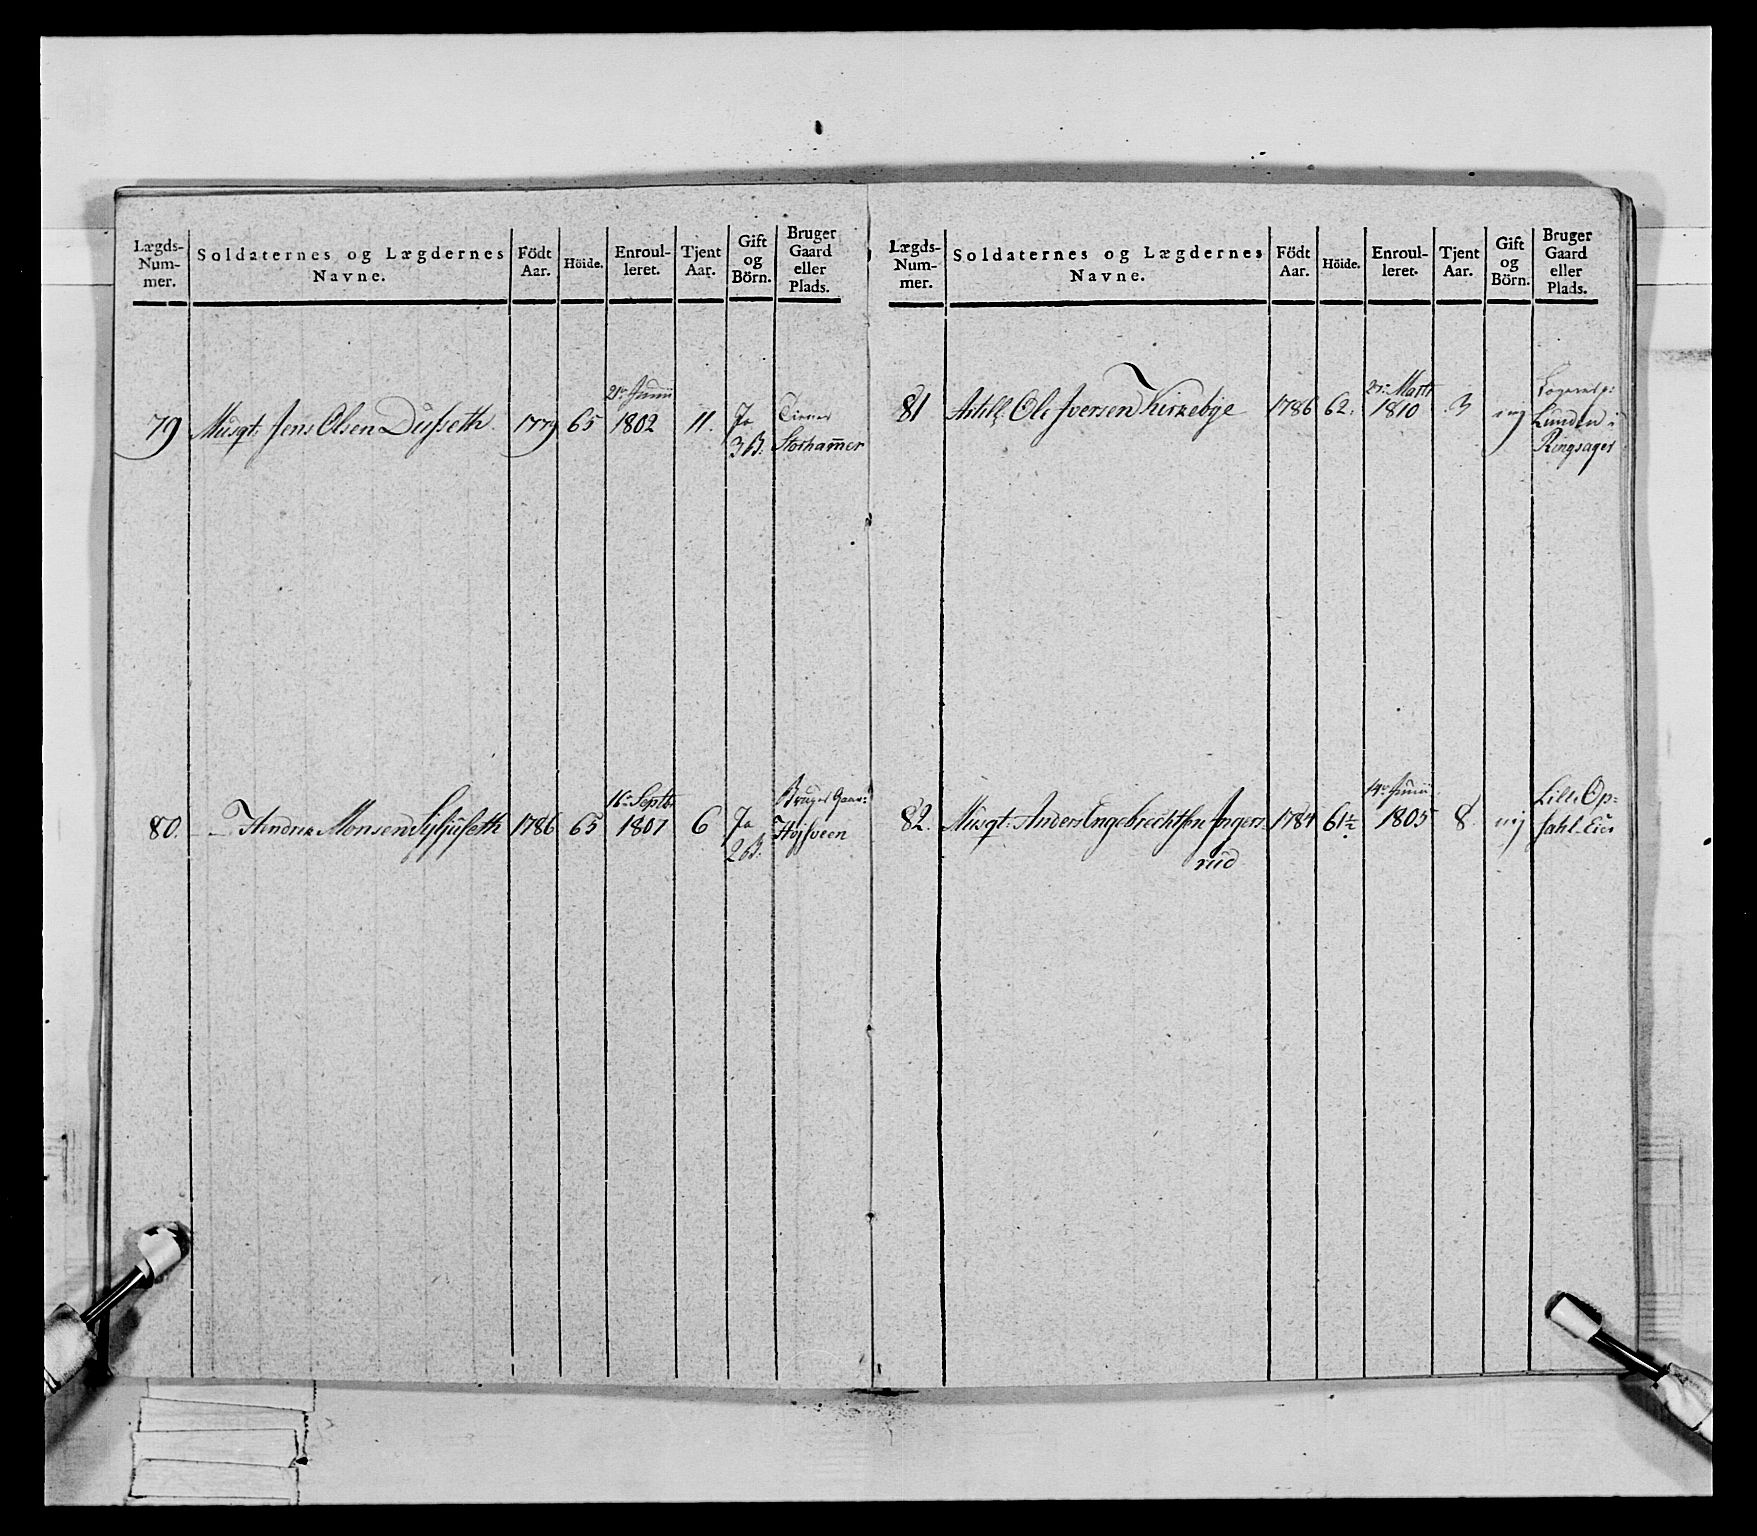 Lægds-
Num-
mer.
Soldaternes og Lægdernes
Navne.
Födt
Aar.
Höide.
Enroul-
leret.
Tjent
Aar.
Gift
og
Börn.
Bruger
Gaard
eller
Plads.
79 Musqt: Jens Olsen Dufseth. 1779 65 21de Junii 1802 11. Ja
3 B. Tiener
Storham̄er
80. - Hendrik Monsen 1786 65 16de Septbr 1807 6 Ja
2 B. Bruger Gaar:
Höjsveen
Lægds-
Num-
mer.
Soldaternes og Lægdernes
Navne.
Födt
Aar.
Höide.
Enroul-
leret.
Tjent
Aar.
Gift
og
Börn.
Bruger
Gaard
eller
Plads.
81 Artill: Ole Iversen Kirkebye 1786 62. Marti 1810 3 nej
Lunden i
Ringsager
82. Musqt: Anders Engebrechtsen Ingers-
rud 1784 61½ 14de Junii 1805 8. nej Lille Op-
sahl-Eier